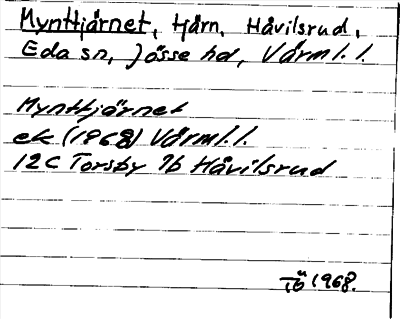 Mynttjärnet, tjärn, Håvilsrud,
Eda sn, Jösse hd, Värml. l.
Mynttjärnet
ek (1968) Värml. l.
12C Torsby 7b Håvilsrud
1968.